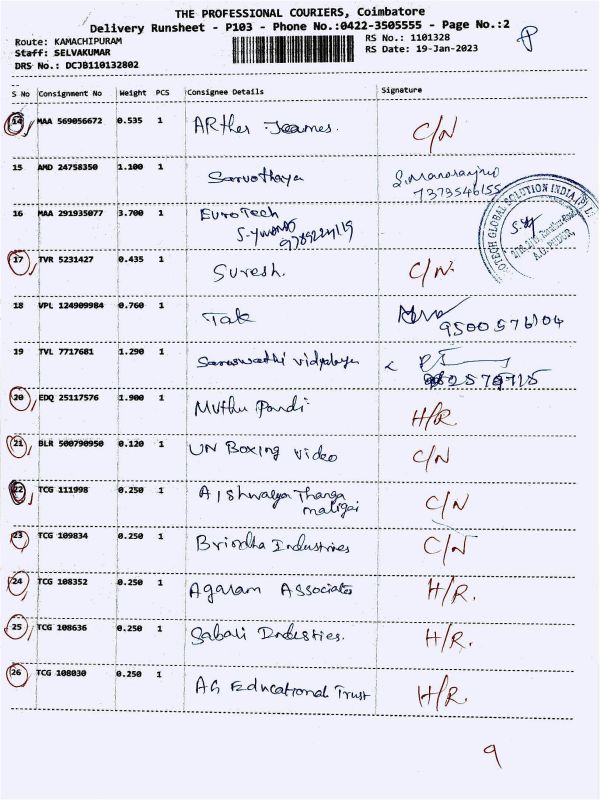 THE PROFESSIONAL COURIERS, Coimbatore
Delivery Runsheet - P103 - Phone No.:0422-3505555 - Page No.:2
Route: KAMACHIPURAM RS No.: 1101328
Staff: SELVAKUMAR RS Date: 19-Jan-2023
DRS No.: DCJB110132802
S No Consignment No Weight PCS Consignee Details Signature
14 MAA 569056672 0.535 1 ARther Jeames. C/N
15 AMD 24758350 1.100 1 Sarvothaya S.Manoranjini
7373546155
16 MAA 291935077 3.700 1 EuroTech
17 TVR 5231427 0.435 1 Suresh. C/N
18 VPL 124909984 0.760 1 Tak
9500576104
19 TVL 7717681 1.290 1 Saraswathi vidyalaya
20 EDQ 25117576 1.900 1 Muthu Pandi H/R
21 BLR 500790950 0.120 1 UN Boxing video C/N
22 TCG 111998 0.250 1 Aishwarya Thanga
maligai C/N
23 TCG 109834 0.250 1 Brindha Industries C/N
24 TCG 108352 0.250 1 Agaram Associates H/R.
25 TCG 108636 0.250 1 Sabari Industies. H/R.
26 TCG 108030 0.250 1 AG Educational Trust H/R
9